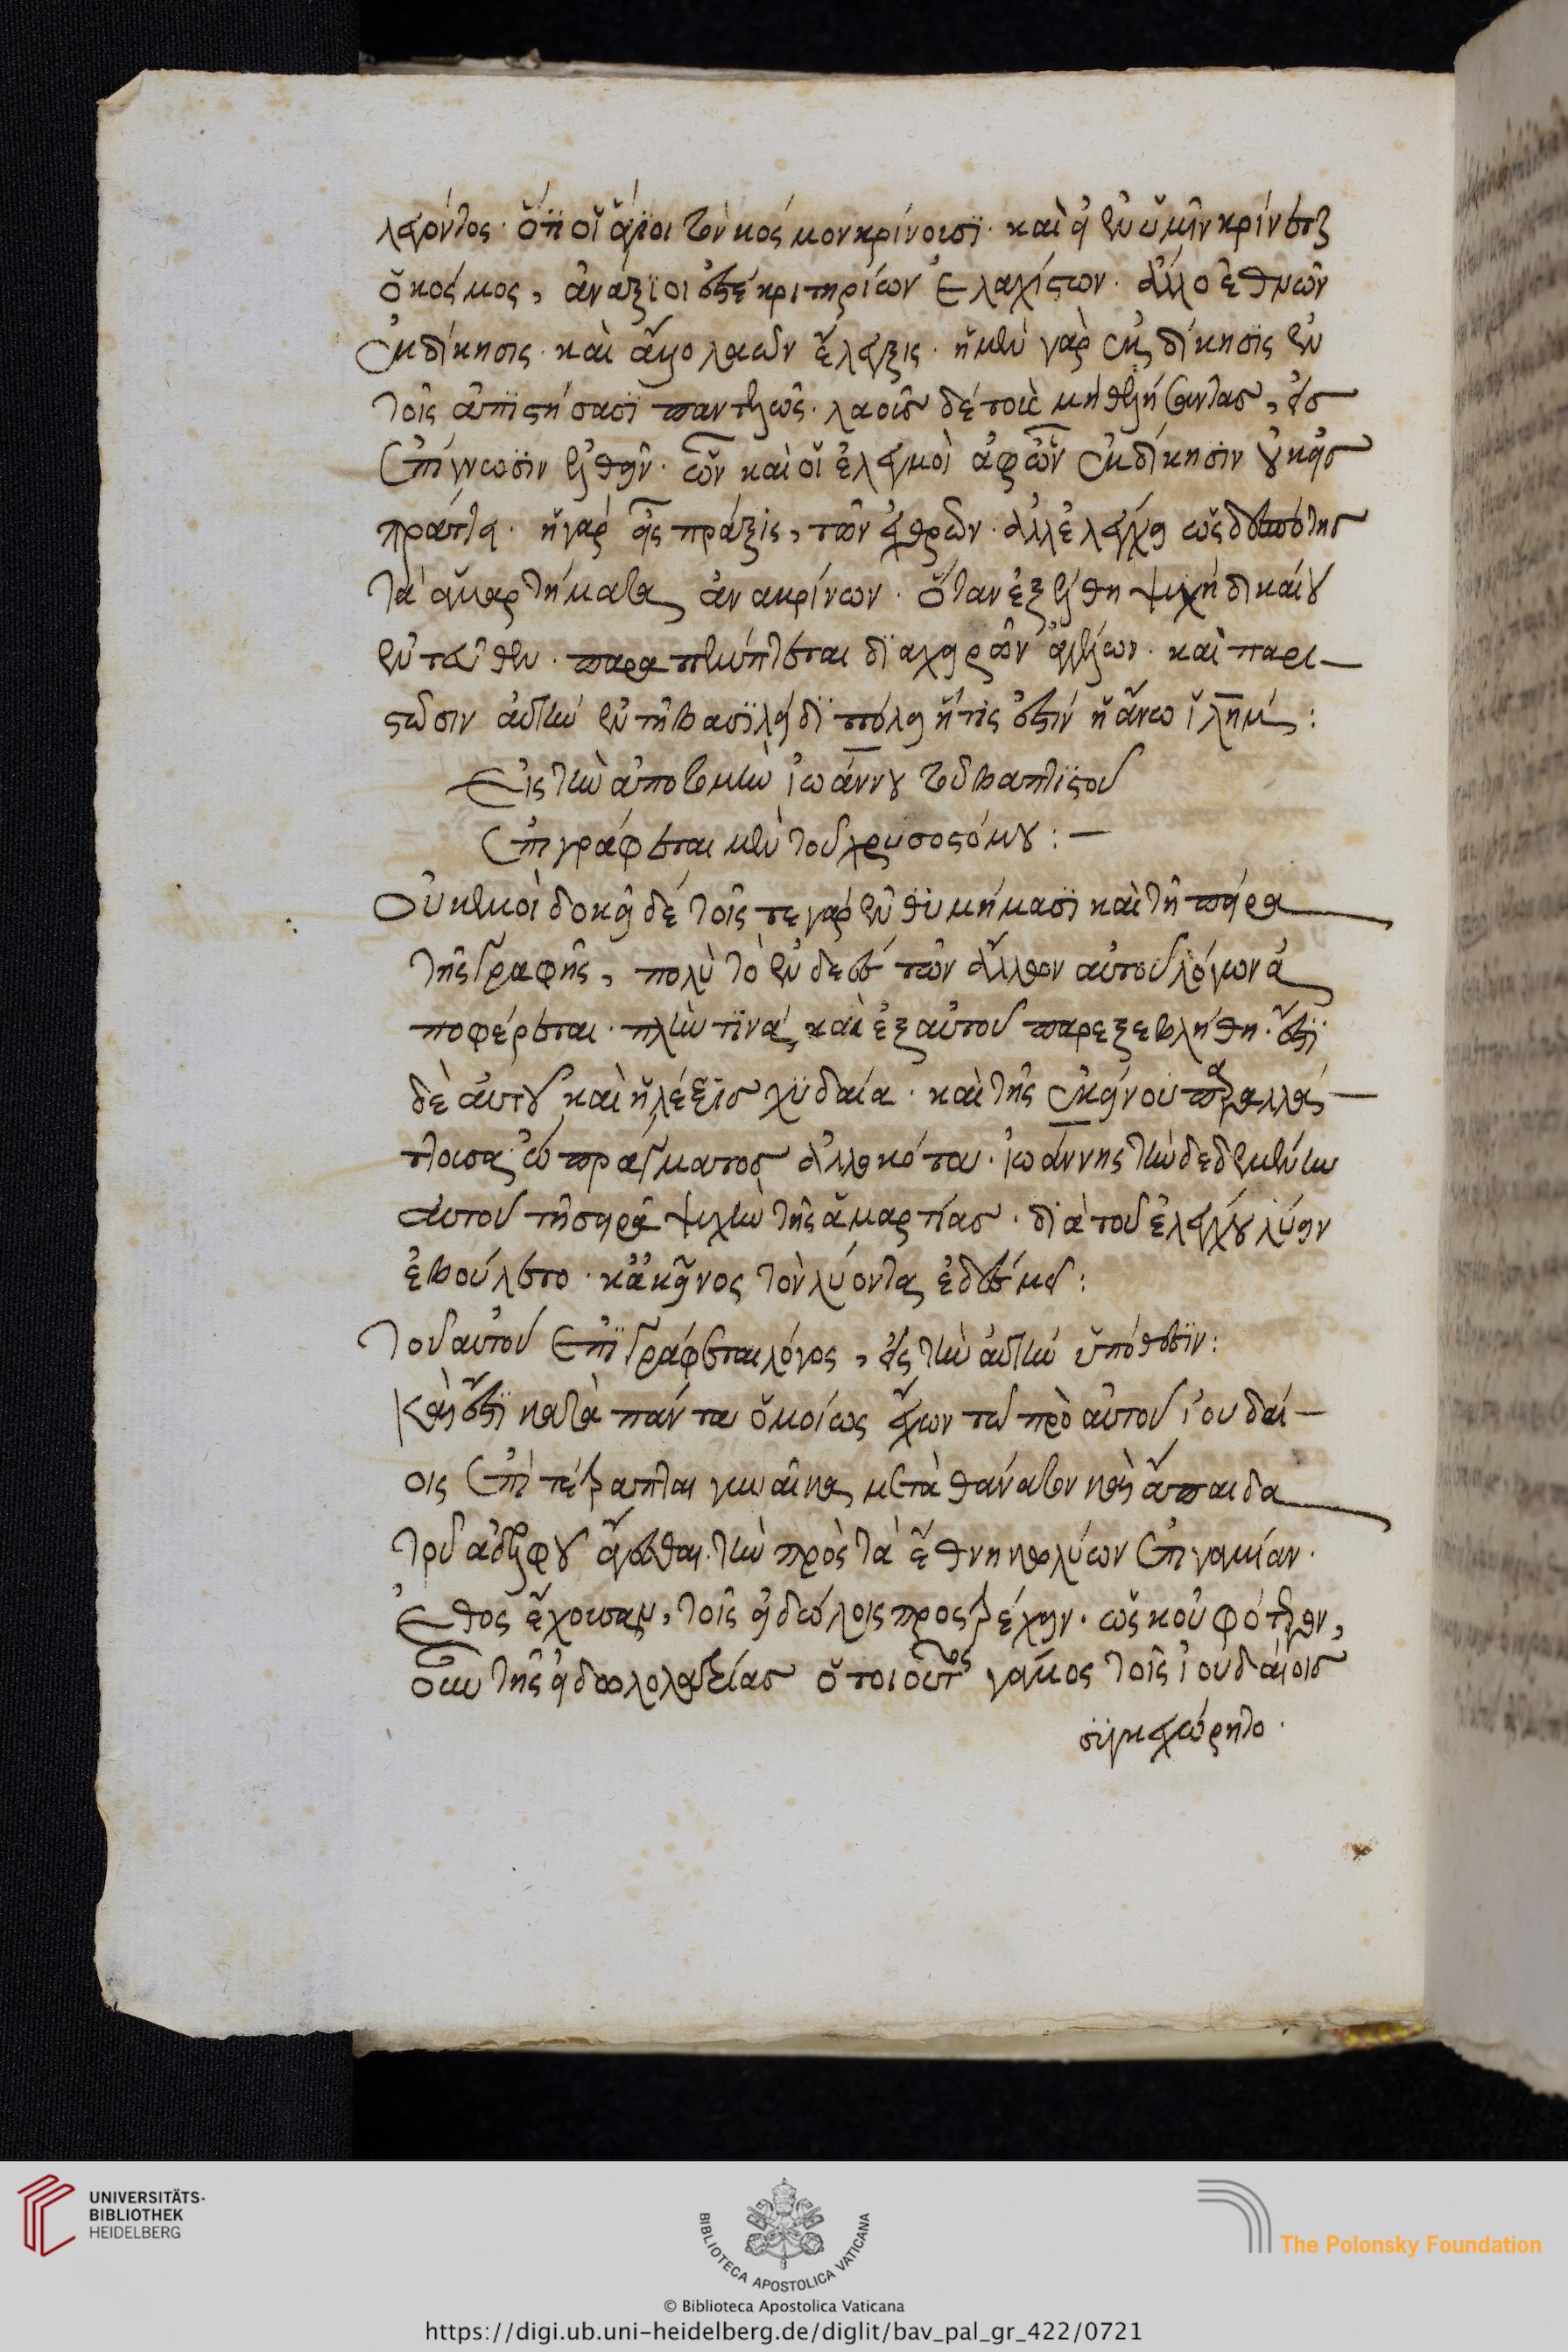 λέγοντος· ὅτι οἱ ἅγιοι τὸν κόσμον κρίνουσι· καὶ εἰ ἐν ὑμῖν κρίνεται
ὁ κόσμος, ἀνάξιοι ἐστὲ κριτηρίων ἐλαχίστων. ἄλλο ἐθνῶν
ἐκδίκησις· καὶ ἄλλο λαῶν ἔλεγξις· ἡ μὲν γὰρ ἐκδίκησις ἐν
τοῖς ἀπιστήσασι παντελῶς· λαοὺς δὲ τοὺς μὴ θελήσαντας, εἰς
ἐπίγνωσιν ἐλθεῖν· ὧν καὶ οἱ ἐλεγμοὶ ἀφ' ὧν ἐκδίκησιν οὐκ εἰσ
πράττει· ἡ γὰρ εἴσπραξις, τῶν ἐχθρῶν· ἀλλ' ἐλέγχει ὡς δεσπότης
τὰ ἁμαρτήματα ἀνακρίνων· ὅταν ἐξέλθη ψυχὴ δικαίου
ἐντεῦθεν· παραπέμπεται διὰ χειρῶν ἀγγέλων· καὶ παρι-
στῶσιν αὐτὴν ἐν τῆ βασιλείδι πόλει ἥτις ἐστὶν ἡ ἄνω ἰλημ:
Εἰς τὴν ἀποτομὴν ἰωάννου τοῦ βαπτιστοῦ
ἐπιγράφεται μὲν τοῦ χρυσοστόμου:—
Οὐκ ἐμοὶ δοκεῖ δὲ τοῖς τε γὰρ ἐνθυμήμασι καὶ τῆ πείρα
τῆς γραφῆς, πολὺ τὸ ἐνδεὲς τῶν ἄλλων αὐτοῦ λόγων ἀ
ποφέρεται· πλὴν τινὰ καὶ ἐξ αὐτοῦ παρεξεβλήθη· ἔστι
δὲ αὐτοῦ καὶ ἡ λέξις χυδαία· καὶ τῆς ἐκείνου παραλλάτ-
τουσα· ὢ πράγματος ἀλλοκότου· ἰωάννης τὴν δεδεμένην
αὐτοῦ τῆ σειρᾶ ψυχὴν τῆς ἁμαρτίας· διὰ τοῦ ἐλέγχου λύειν
ἐβούλετο· κἀκεῖνος τὸν λύοντα ἐδέσμει:
Τοῦ αὐτοῦ ἐπιγράφεται λόγος, εἰς τὴν αὐτὴν ὑπόθεσιν:
Καὶ ἔστι κατὰ πάντα ὁμοίως ἔχων τῶ πρὸ αὐτοῦ ἰουδαί-
οις ἐπιτέτραπται γυναῖκα μετὰ θάνατον καὶ ἄπαιδα
τοῦ ἀδελφοῦ ἄγεσθαι. τὴν πρὸς τὰ ἔθνη κωλύων ἐπιγαμίαν·
ἔθος ἔχουσαν, τοῖς εἰδώλοις προστρέχειν· ὡς κουφότερον,
οὖν τῆς εἰδωλολατρείας ὁ τοιοῦτος γάμος τοῖς ἰουδαίοις
συγκεχώρητο·
UNIVERSITÄTS-
BIBLIOTHEK
HEIDELBERG
BIBLIOTECA APOSTOLICA VATICANA
The Polonsky Foundation
© Biblioteca Apostolica Vaticana
https://digi.ub.uni-heidelberg.de/diglit/bav_pal_gr_422/0721